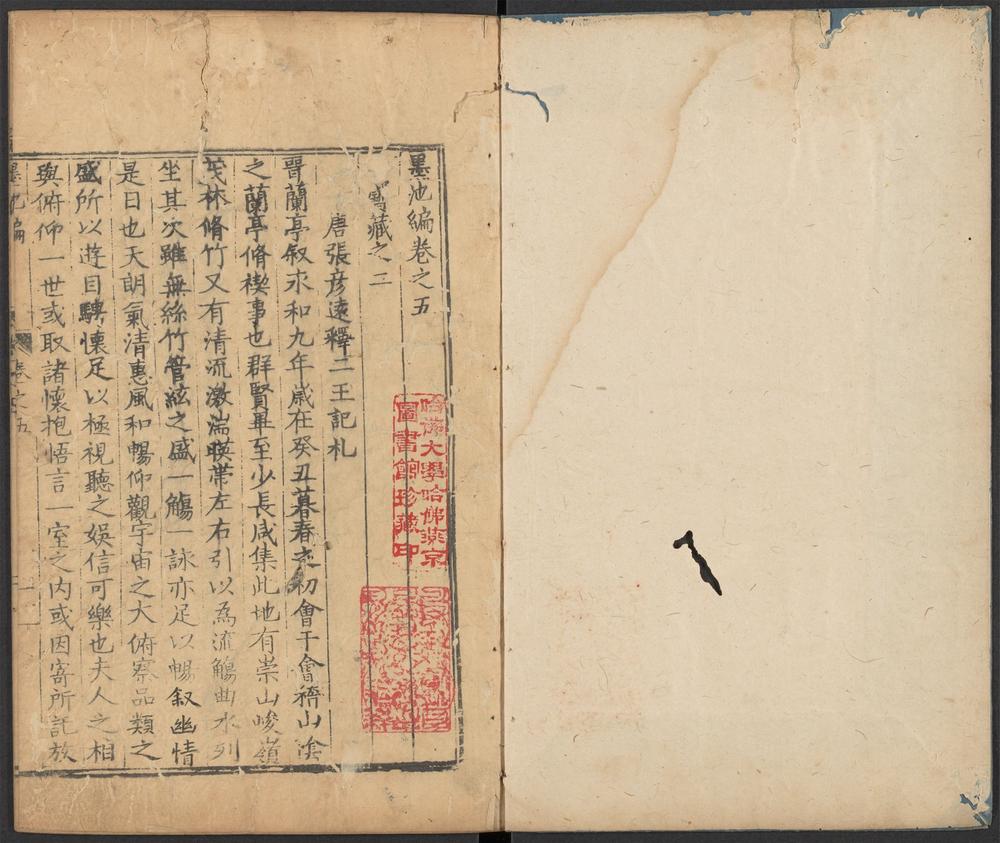 墨池編卷之五
寶藏之二
唐張彦遠釋二王記札
晉蘭亭叙求和九年歲在癸丑暮春之初會于會稽山陰
之蘭亭脩稧事也群賢畢至少長咸集此地有崇山峻嶺
茂林脩竹又有清流激湍暎帶左右引以為流觴曲水列
坐其次雖無絲竹管絃之盛一觴一詠亦足以暢叙幽情
是日也天朗氣清惠風和暢仰觀宇宙之大俯察品類之
盛所以遊目騁懷足以極視聽之娛信可樂也夫人之相
與俯仰一世或取諸懷抱悟言一室之内或因寄所託放
墨池編 卷之五
哈佛大學哈佛燕京
圖書館珍藏印